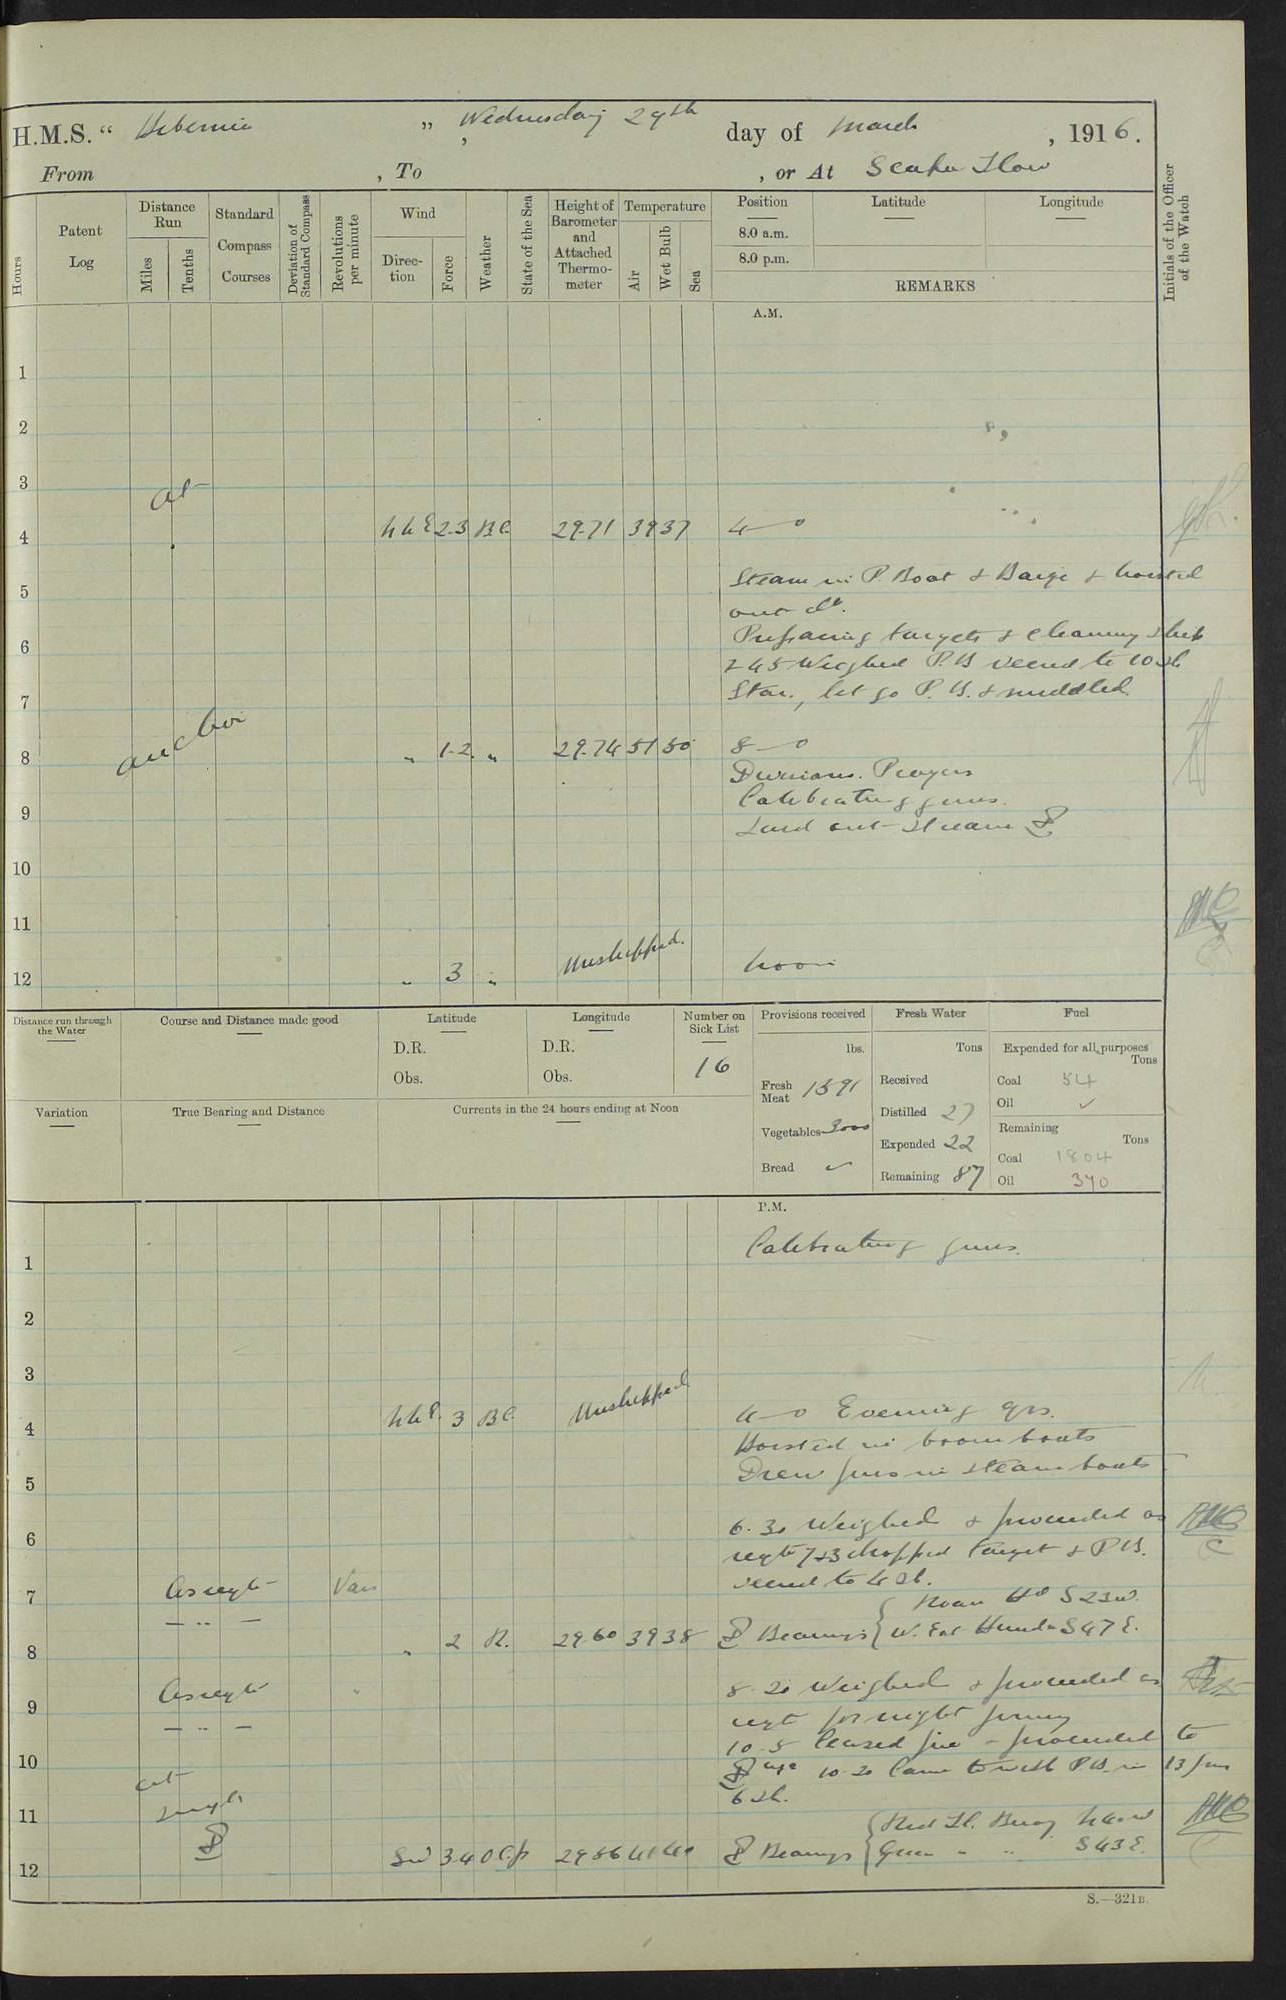 H.M.S. “ Hibernia ” , Wednesday 29th day of March , 1916.
From , To , or At Scapa Flow
Hours
Patent Log
Distance Run
Miles
Tenths
Standard Compass Courses
Deviation of Standard Compass
Revolutions per minute
Wind
Direction
Force
Weather
State of the Sea
Height of Barometer and Attached Thermometer
Temperature
Air
Wet Bulb
Sea
Position
8.0 a.m.
8.0 p.m.
Latitude
Longitude
REMARKS
Initials of the Officer of the Watch
A.M.
1
2
3 at
4 NNE 2.3 BC 29.71 39 37 4—0
Steam in P. Boat & Barge & hoisted
5
out do.
6 Preparing targets & cleaning ship
2 45 Weighed P.B veered to 10 sh
7 Star., let go P.B. & middled
8 anchor „ 1-2 „ 29.74 51 50 8—0
Divisions. Prayers
9 Calibrating guns.
Laid out stream ⚓
10
11
12 „ 3 „ Unshipped. Noon
Distance run through the Water
Course and Distance made good
Latitude
D.R.
Obs.
Longitude
D.R.
Obs.
Number on Sick List
16
Provisions received
lbs.
Fresh Meat 1591
Vegetables 3000
Bread ✓
Fresh Water
Tons
Received
Distilled 27
Expended 22
Remaining 87
Fuel
Expended for all purposes
Tons
Coal 54
Oil ✓
Remaining
Tons
Coal 1804
Oil 370
Variation
True Bearing and Distance
Currents in the 24 hours ending at Noon
P.M.
1 Calibrating guns.
2
3
4 NNE. 3 BC Unshipped 4—0 Evening qrs.
Hoisted in boom boats
5 Drew fires in steam boats
6 6.30 Weighed & proceeded as
reqte 7 23 dropped target & P.B.
7 As reqte Var veered to 4 sh.
— „ — Hoan Hd S23W.
8 „ 2 R. 29.60 39 38 ⚓ Bearings W. Ent Hunda S47E.
As reqte 8.20 Weighed & proceeded as
9 reqte for night firing
— „ — 10.5 Ceased fire - proceeded to
10 ⚓age 10.20 Came to with P.B. in 13 fms
at 6 sh.
11 single ⚓ Red Lt. Buoy N40W
12 SW 3.4 OCP 29.56 41 40 ⚓ Bearings Green „ „ S43E.
S.—321B.